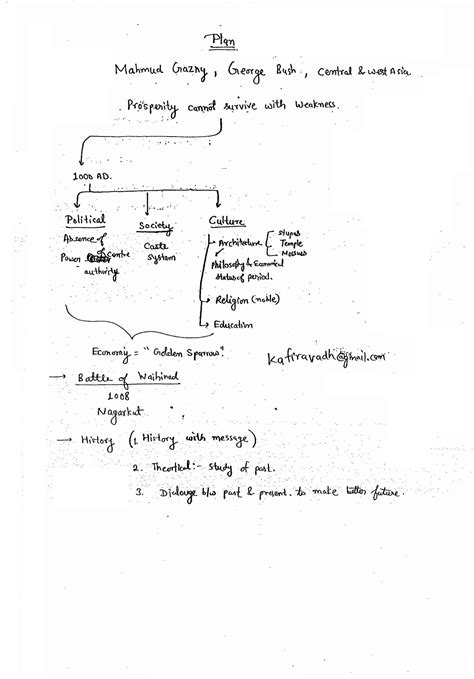 Plan
Mahmud Gazny, George Bush, Central & West Asia.
Prosperity cannot survive with weakness.
1000 AD.
Political
Absence of
Power Centre
authority
Society
Caste
System
Culture
Architecture
Stupas
Temple
Mosques
Philosophy & Economical
status of period.
Religion (noble)
Education
Economy = "Golden Sparrow".
kafiravadh@gmail.com
→ Battle of Waihined
1008
Nagarkut
→ History (1. History with message)
2. Theortical:- Study of past.
3. Dialouge b/w past & present. to make better future.